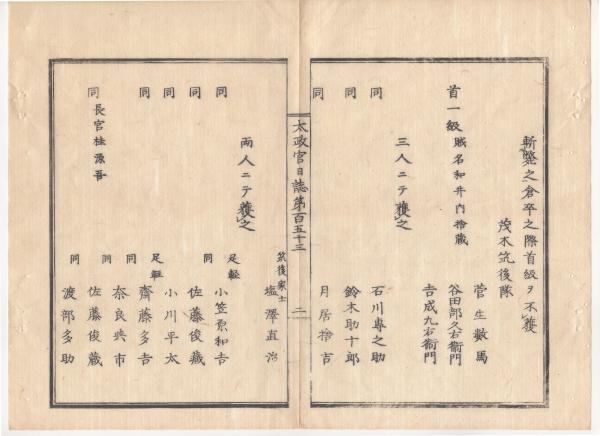 斬斃之倉卒之際首級ヲ不獲
茂木筑後隊
菅生數馬
首一級賊名和井内捨藏
谷田部久右衛門
吉成九右衛門
三人ニテ獲之
同　石川專之助
同　鈴木助十郎
同　月居捨吉
太政官日誌第百五十三　二
筑後家士
塩澤直治
兩人ニテ獲之
同　足軽　小笠原和吉
同　同　佐藤俊藏
同　小川平太
同　足軽　齋藤多吉
同　奈良典市
同長官桂源吾　同　佐藤俊藏
同　渡部多助